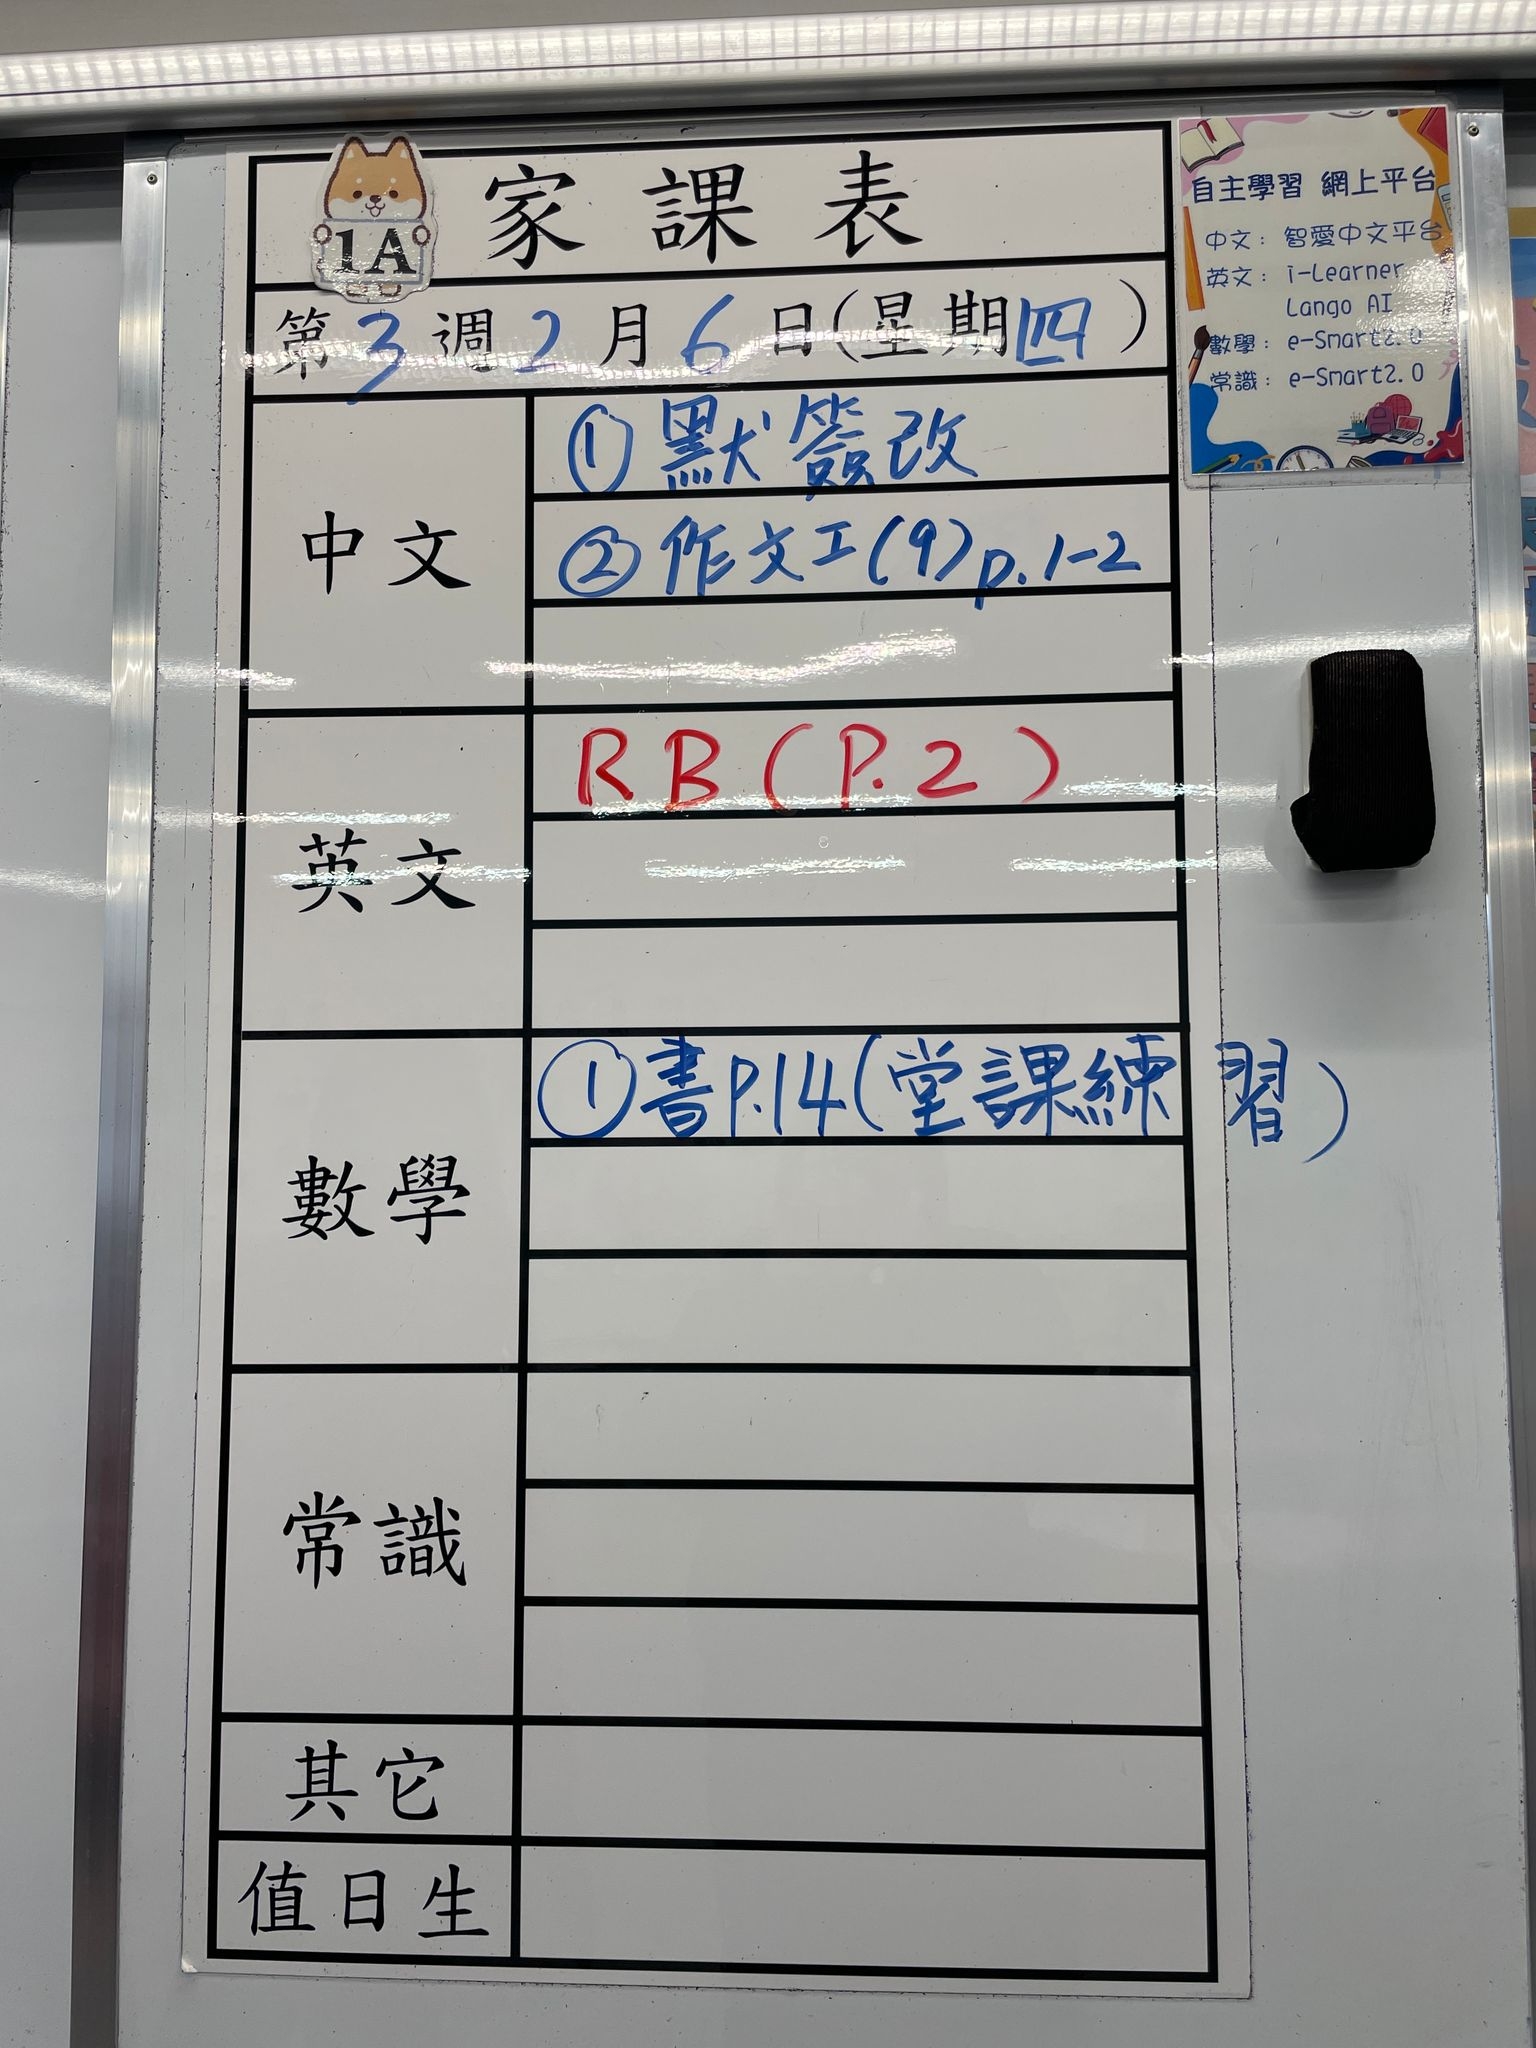 1A
家課表
第3週2月6日(星期四)
中文
①默簽改
②作文工(9)p.1-2
英文
RB(P.2)
數學
①書P.14(堂課練習)
常識
其它
值日生
自主學習 網上平台
中文: 智愛中文平台
英文: i-Learner
Lango AI
數學: e-Smart2.0
常識: e-Smart2.0